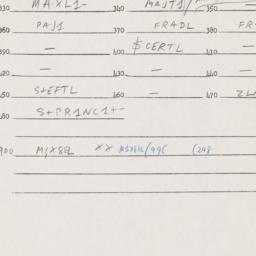 330 MAXL1- 340 MAJT1/ 350 —
360 PAJ1 370 FRADL 380 FR
390 — 400 $CERTL 410 —
420 — 430 — 440 —
450 S+EFTL 460 — 470
480 S+PRINC1+-
900 XX (248